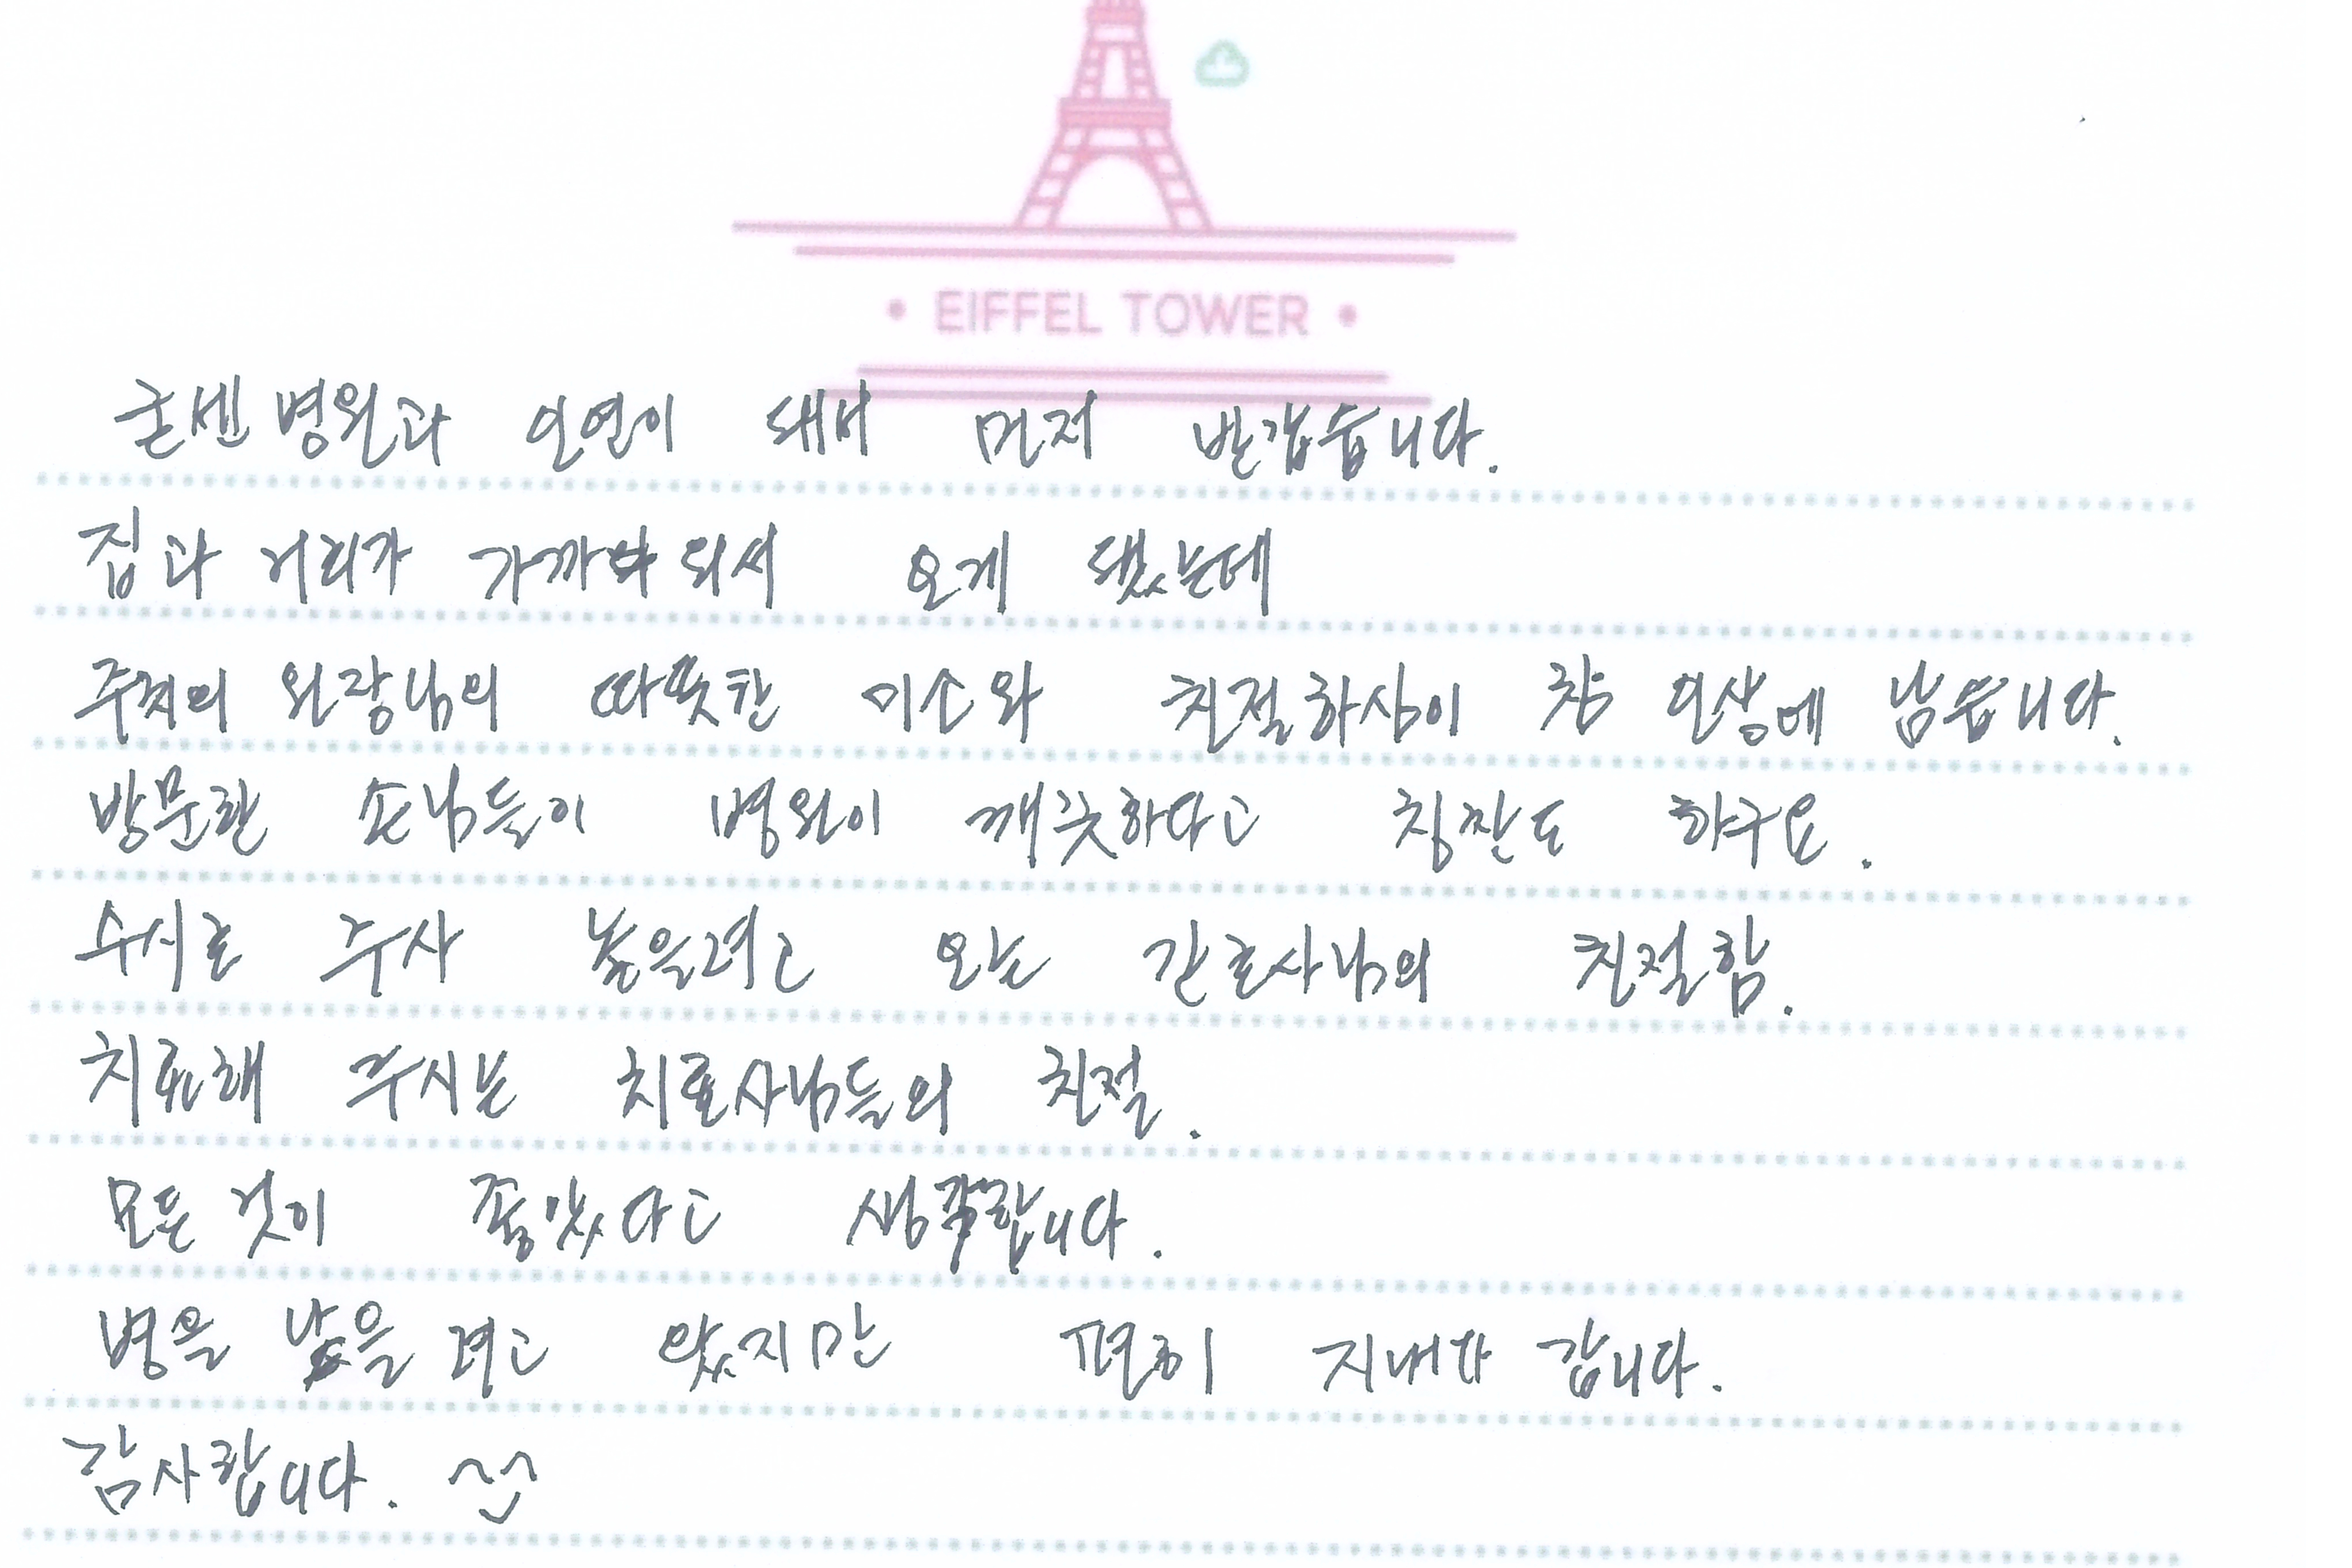 EIFFEL TOWER
굳센병원과 인연이 돼서 먼저 반갑습니다.
집과 거리가 가까워서 오게 됐는데
주치의 원장님의 따뜻한 미소와 친절하심이 참 인상에 남습니다.
방문한 손님들이 병원이 깨끗하다고 칭찬도 하구요.
수시로 주사 놓을려고 오는 간호사님의 친절함.
치료해 주시는 치료사님들의 친절.
모든 것이 좋았다고 생각합니다.
병을 낳을려고 왔지만 편히 지내다 갑니다.
감사합니다.